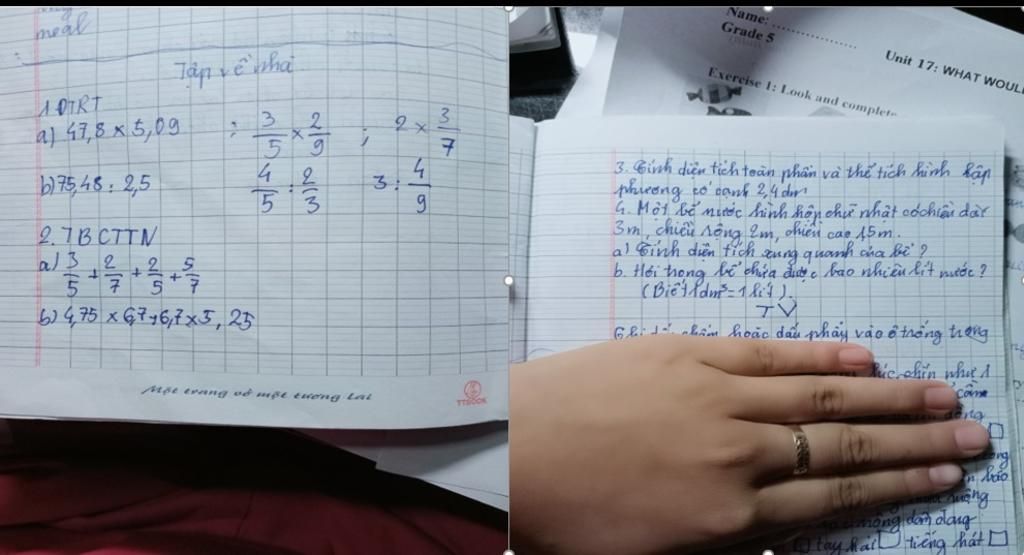 meal
Tập về nhà
1. ĐTRT
a) 47,8 × 5,09 ; 3/5 × 2/9 ; 2 × 3/7
b) 75,48 : 2,5 4/5 : 2/3 3 : 4/9
2. TBCTTN
a) 3/5 + 2/7 + 2/5 + 5/7
b) 4,75 × 6,7 + 6,7 × 5,25
Một trang vở một tương lai
TTBOOK
Name: ..................
Grade 5
Unit 17: WHAT WOUL
Exercise 1: Look and complete
3. Tính diện tích toàn phần và thể tích hình lập
phương có cạnh 2,4 dm
4. Một bể nước hình hộp chữ nhật có chiều dài
3m, chiều rộng 2m, chiều cao 1,5m.
a) Tính diện tích xung quanh của bể?
b. Hỏi trong bể chứa được bao nhiêu lít nước?
(Biết 1dm³ = 1 lít).
TV
chấm hoặc dấu phẩy vào ô trống trong
chín như 1
dang
tay hái □ tiếng hát □